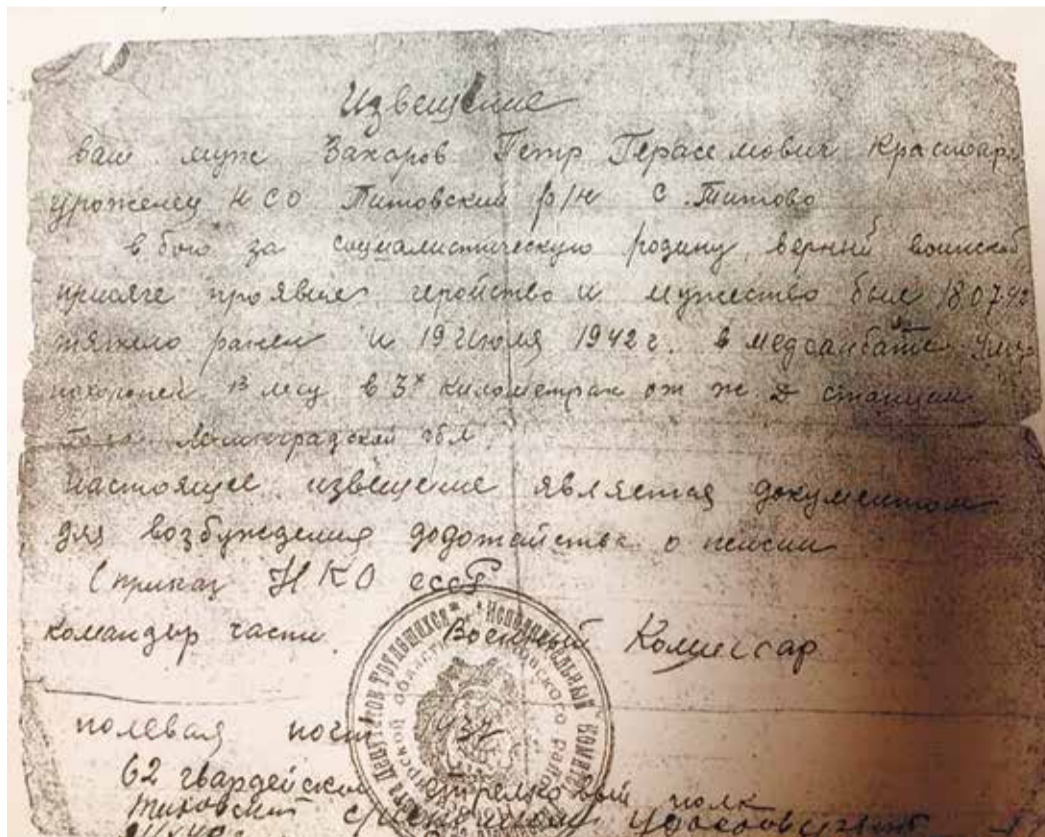 Извещение
ваш муж Захаров Петр Герасемович Красноар
уроженец НСО Титовский р/н с. Титово
в бою за социалистическую родину, верный воинской
присяге проявив геройство и мужество был 18.07.42
тяжело ранен и 19 Июля 1942 г. в медсанбате умер
похоронен в лесу в 3х километрах от ж д станции
Пола Ленинградской обл.
настоящее извещение является документом
для возбуждения ходотайства о пенсии
(приказ НКО СССР
командыр части. Военный Комиссар
полевая почт 937
62 гвардейской стрелковый полк
Титовский с/исполком
Депутатов Трудящихся * Исполнительный Комитет